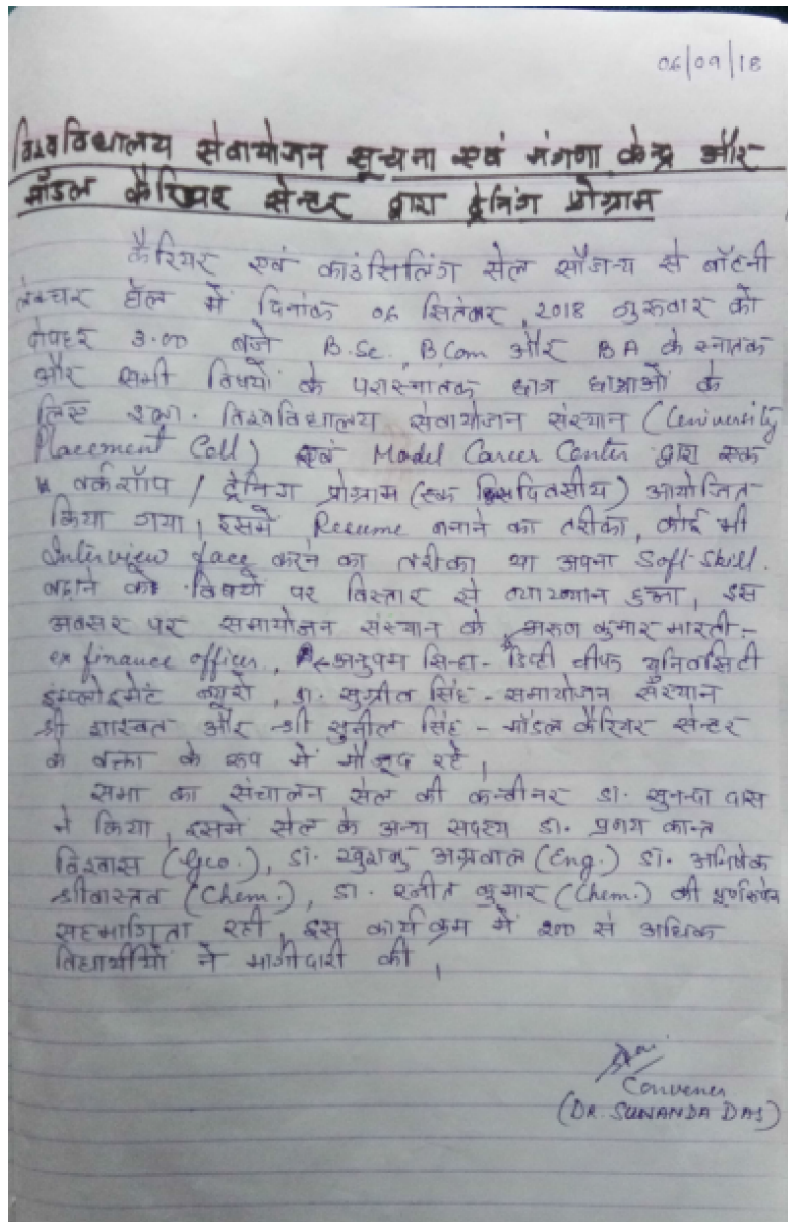 06/09/18
विश्वविद्यालय सेवायोजन सूचना एवं मंत्रणा केन्द्र और
मॉडल कैरियर सेन्टर द्वारा ट्रेनिंग प्रोग्राम
कैरियर एवं काउंसिलिंग सेल सौजन्य से बॉटनी
लेक्चर हॉल में दिनांक 06 सितंबर, 2018 गुरुवार को
दोपहर 3.00 बजे B.Sc. B.Com और BA के स्नातक
और सभी विषयों के परास्नातक छात्र छात्राओं के
लिए विश्वविद्यालय सेवायोजन संस्थान (University
Placement Cell) एवं Model Career Center द्वारा एक
वर्कशॉप / ट्रेनिंग प्रोग्राम (एक दिवसीय) आयोजित
किया गया, इसमें Resume बनाने का तरीका, कोई भी
Interview face करने का तरीका या अपना Soft-Skill
बढ़ाने के विषयों पर विस्तार से व्याख्यान हुआ, इस
अवसर पर समायोजन संस्थान के अरुण कुमार भारती -
ex finance officer, अनुपम सिन्हा - डिप्टी चीफ युनिवर्सिटी
इंम्प्लोइमेंट ब्यूरो, डा. सुग्रीव सिंह - समायोजन संस्थान
श्री शाश्वत और श्री सुनील सिंह - मॉडल कैरियर सेन्टर
के वक्ता के रूप में मौजूद रहे,
सभा का संचालन सेल की कन्वीनर डा. सुनन्दा दास
ने किया, इसमें सेल के अन्य सदस्य डा. प्रणय कान्त
विश्वास (Geo.), डा. अग्रवाल (Eng.) डा. अभिषेक
श्रीवास्तव (Chem.), डा. रनीत कुमार (Chem.) की
सहभागिता रही, इस कार्यक्रम में 200 से अधिक
विद्यार्थीयों ने भागीदारी की,
Convener
(DR. SUNANDA DAS)